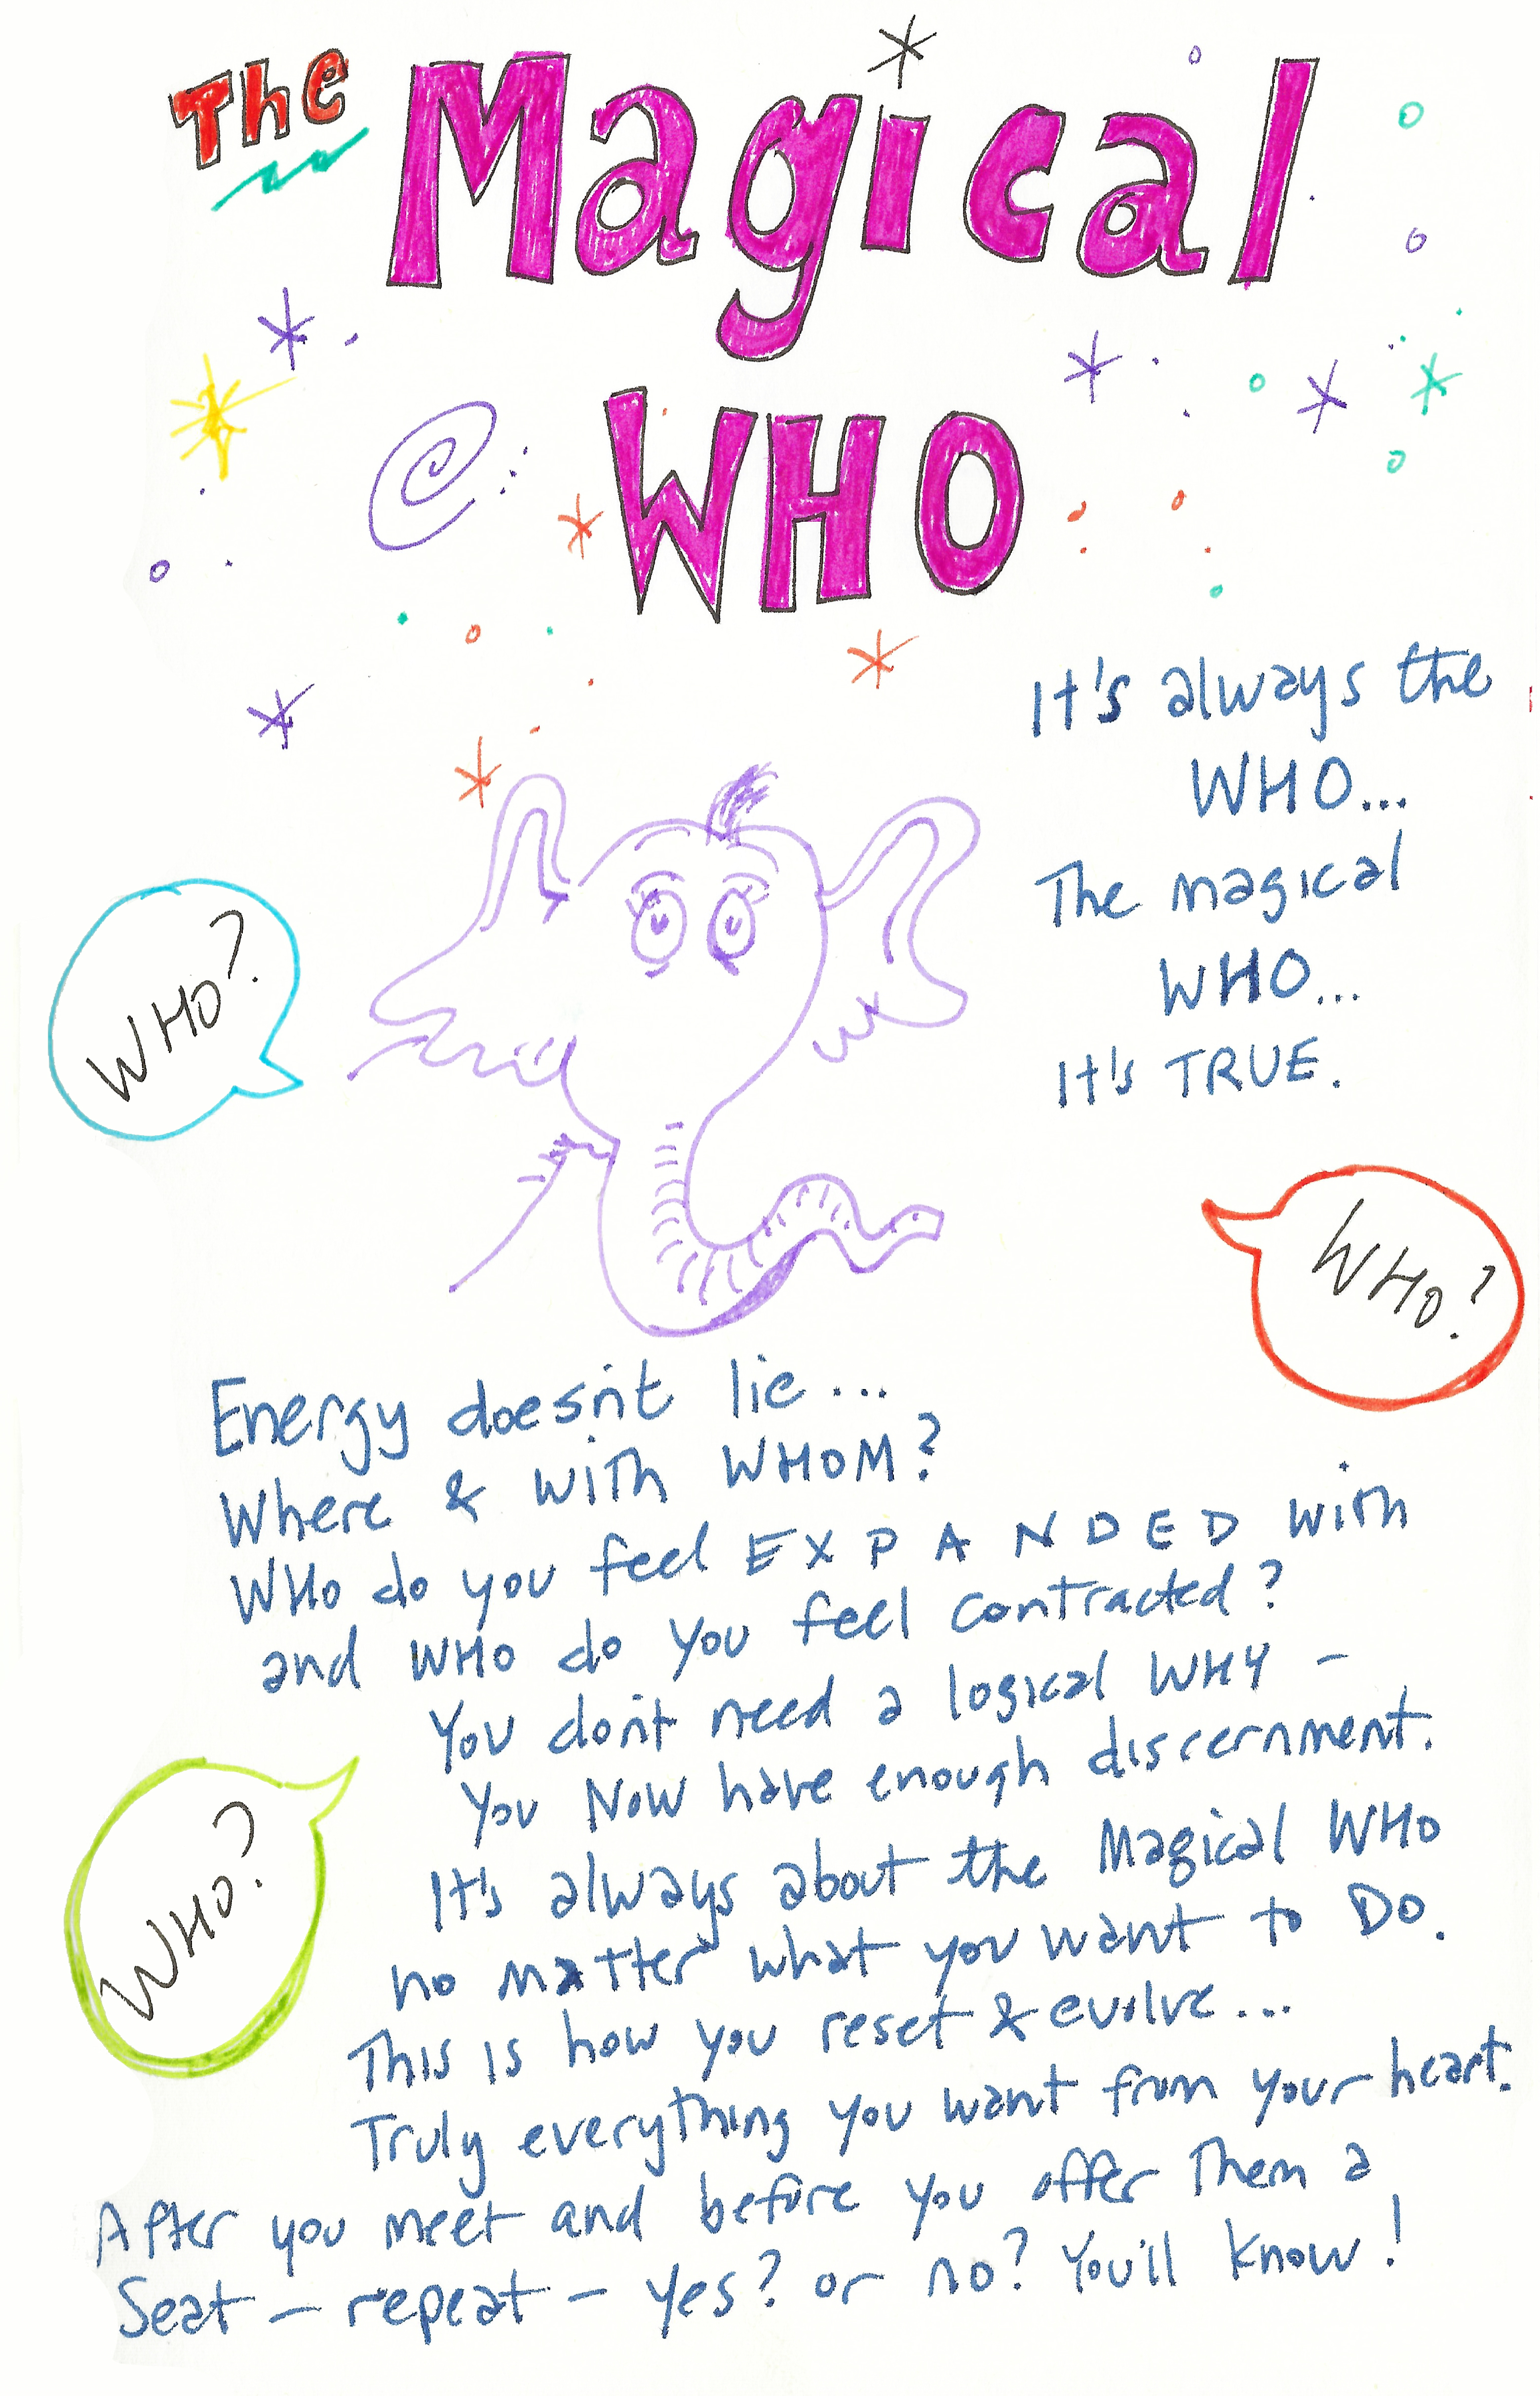 The Magical
WHO
It's always the
WHO...
The magical
WHO...
It's TRUE.
WHO?
WHO?
Energy doesn't lie...
Where & with WHOM?
WHO do you feel EXPANDED with
and WHO do you feel contracted?
You don't need a logical WHY -
You NOW have enough discernment.
It's always about the Magical WHO
no matter what you want to DO.
WHO?
This is how you reset & evolve...
Truly everything you want from your heart.
After you meet and before you offer them a
Seat - repeat - yes? or no? You'll know!